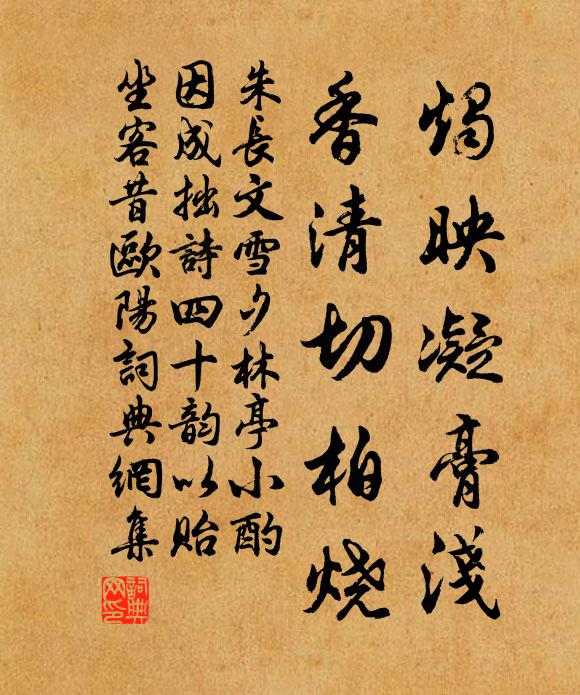 燭映凝膏淺
香清切柏燒
朱長文雪夕林亭小酌
因成拙詩四十韵以貽
坐客昔歐陽詞典網集